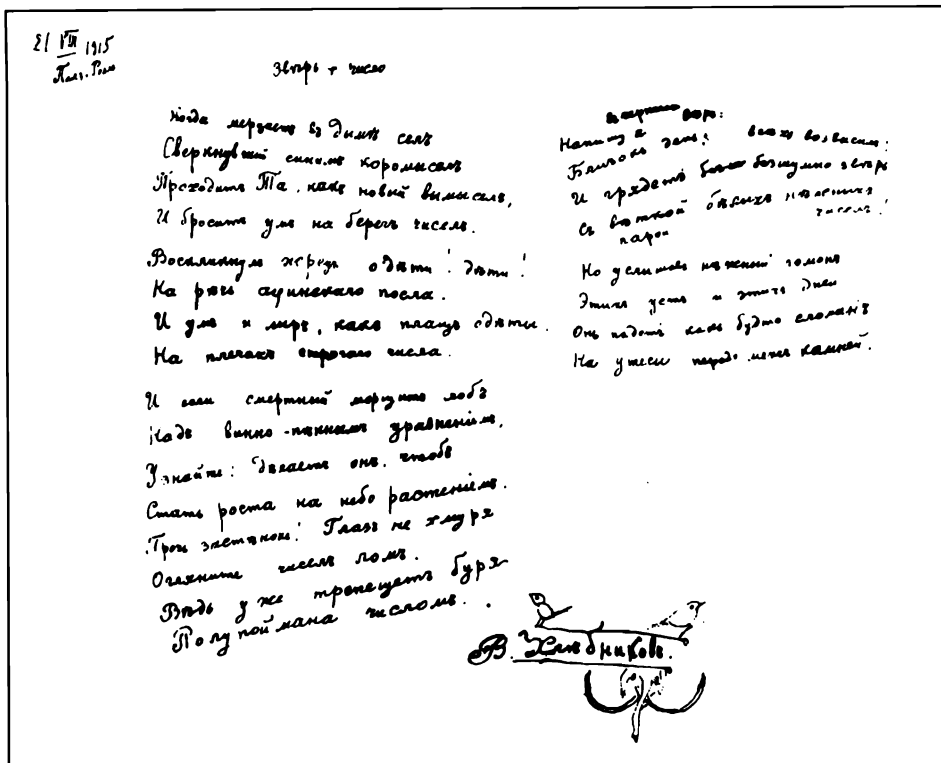 21 VIII 1915
Звѣрь + число
Когда мерцаетъ въ дымѣ селъ
Сверкнувшій синимъ коромысломъ
Проходитъ Та, какъ новый вымыселъ,
И броситъ умъ на берегъ числъ.
Воскликнулъ жрецъ о дѣти! дѣти!
На рѣчь афинскаго посла.
И умъ и міръ, какъ плащъ одѣты.
На плечахъ строгаго числа.
И если смертный морщитъ лобъ
Надъ винно-пѣннымъ уравненіемъ,
Узнайте: дѣлаетъ онъ, чтобъ
Стать роста на небо растеніемъ.
Прочь застѣнокъ! Глазъ не хмуря
Огляните чиселъ ломъ.
Вѣдь уже трепещетъ буря
Полупоймана числомъ.
Напишу в вѣрь:
Близокъ день: всѣхъ возвысил:
И грядетъ безшумно звѣрь
Съ парой бѣлыхъ нѣжныхъ чиселъ!
Но услышавъ нѣжный гомонъ
Этихъ устъ и этихъ дней
Онъ падетъ какъ будто сломанъ
На утесы передъ камней.
В. Хлѣбниковъ.